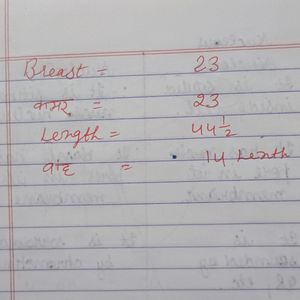 Breast = 23
कमर = 23
Length = 44 1/2
बांह = 14 Lenth